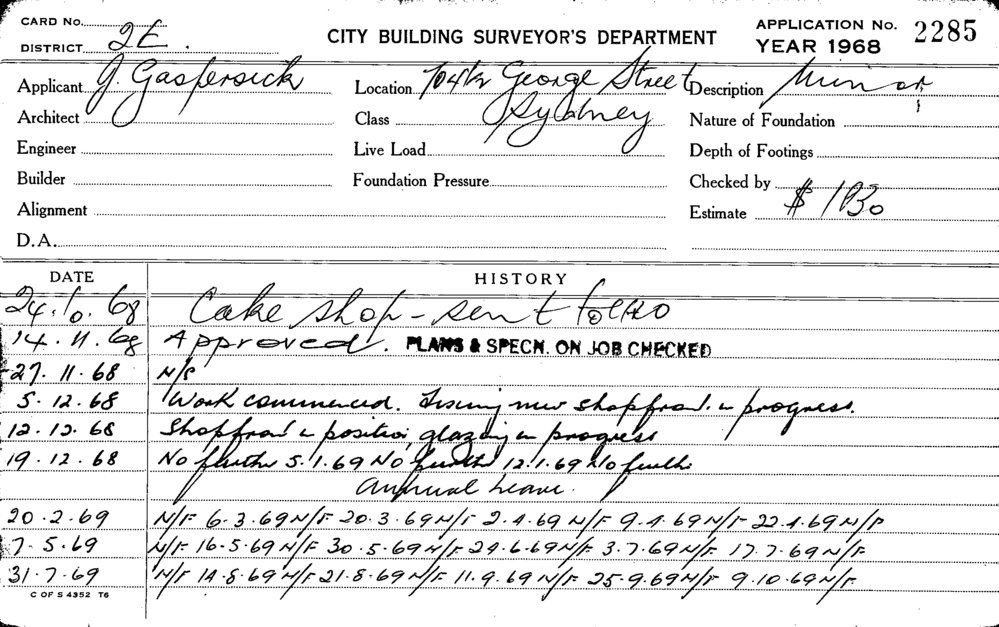 CARD No.
DISTRICT 2E.
CITY BUILDING SURVEYOR'S DEPARTMENT
APPLICATION No. 2285
YEAR 1968
Applicant J. Gaspersick
Location 704 George Street
Sydney
Description Minor
Architect
Class
Nature of Foundation
Engineer
Live Load
Depth of Footings
Builder
Foundation Pressure
Checked by
Alignment
Estimate $
D.A.
DATE HISTORY
24.10.68 Cake shop - sent to
14.11.68 Approved. PLANS & SPECN. ON JOB CHECKED
27.11.68 N/S
5.12.68 Work commenced. new shopfront in progress.
12.12.68 Shopfront in position, glazing in progress
19.12.68 No further 5.1.69 No further 12.1.69 No further
Annual Leave.
20.2.69 N/F 6.3.69 N/F 20.3.69 N/F 2.4.69 N/F 9.4.69 N/F 22.4.69 N/F
7.5.69 N/F 16.5.69 N/F 30.5.69 N/F 24.6.69 N/F 3.7.69 N/F 17.7.69 N/F
31.7.69 N/F 14.8.69 N/F 21.8.69 N/F 11.9.69 N/F 25.9.69 N/F 9.10.69 N/F
C OF S 4352 T6